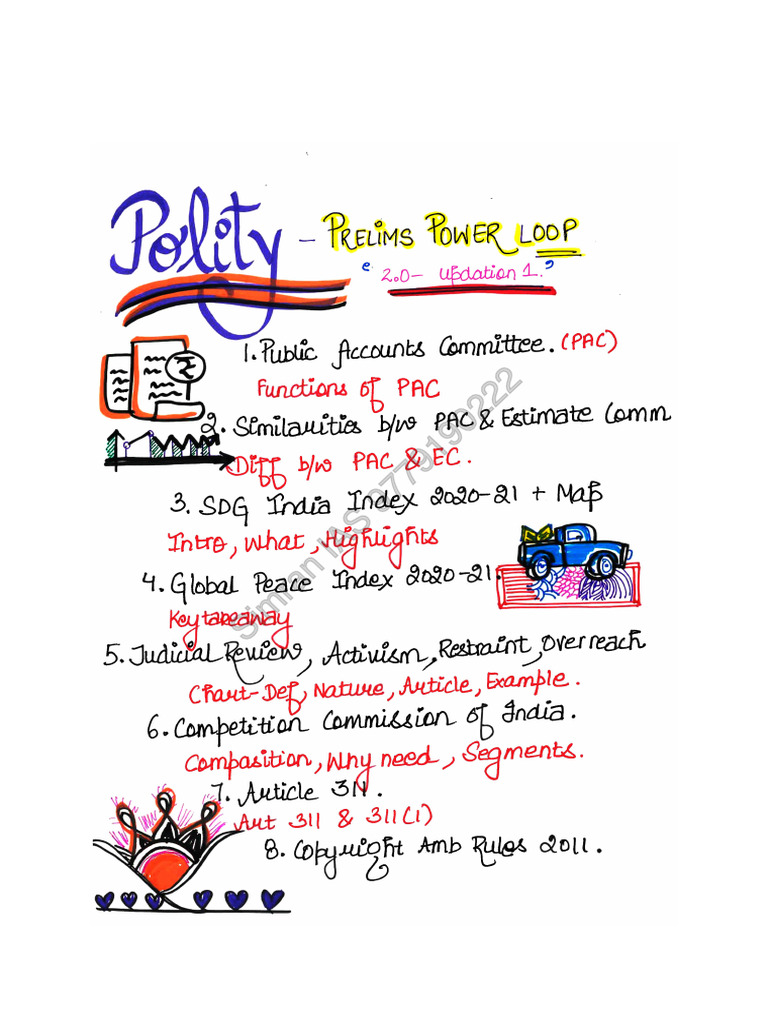 Polity – PRELIMS POWER LOOP
"2.0- Updation 1."
1. Public Accounts Committee. (PAC)
Functions of PAC
2. Similarities b/w PAC & Estimate Comm
Diff b/w PAC & EC.
3. SDG India Index 2020-21 + Map
Intro, What, Highlights
4. Global Peace Index 2020-21.
Key takeaway
5. Judicial Review, Activism, Restraint, Overreach
Chart-Def, Nature, Article, Example.
6. Competition Commission of India.
Composition, Why need, Segments.
7. Article 311.
Art 311 & 311(1)
8. Copyright Amb Rules 2011.
Simran IAS 9779190222
₹